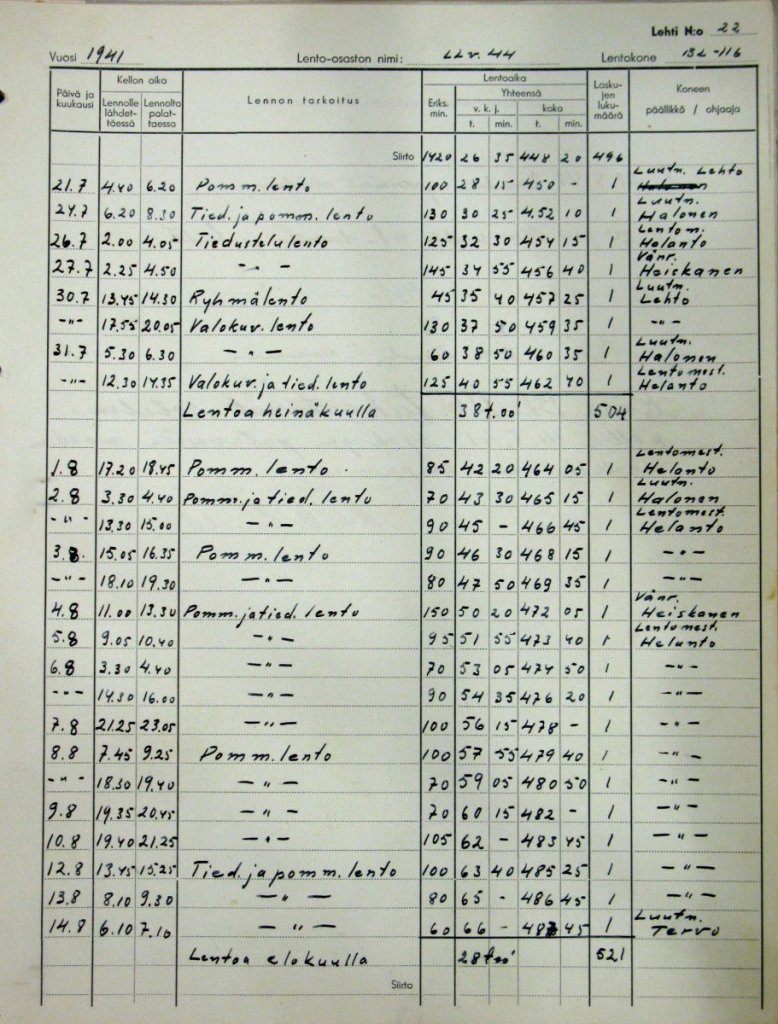 Lehti N:o 22
Vuosi 1941 Lento-osaston nimi: LLv. 44 Lentokone BL-116
Päivä ja kuukausi Kellon aika Lennolle lähdettäessä Lennolta palattaessa Lennon tarkoitus Lentoaika Eriks. min. Yhteensä v. k. j. t. min. koko t. min. Laskujen lukumäärä Koneen päällikkö / ohjaaja
Siirto 1420 26 35 448 20 496
21.7 4.40 6.20 Pomm. lento 100 28 15 450 - 1 Luutn. Lehto
24.7 6.20 8.30 Tied. ja pomm. lento 130 30 25 452 10 1 Luutn. Halonen
26.7 2.00 4.05 Tiedustelulento 125 32 30 454 15 1 Lentom. Helanto
27.7 2.25 4.50 - " - 145 34 55 456 40 1 Vänr. Heiskanen
30.7 13.45 14.30 Ryhmälento 45 35 40 457 25 1 Luutn. Lehto
-"- 17.55 20.05 Valokuv. lento 130 37 50 459 35 1 -"-
31.7 5.30 6.30 - " - 60 38 50 460 35 1 Luutn. Halonen
-"- 12.30 14.35 Valokuv. ja tied. lento 125 40 55 462 40 1 Lentomest. Helanto
Lentoa heinäkuulla 38 t. 00' 504
1.8 17.20 18.45 Pomm. lento 85 42 20 464 05 1 Lentomest. Helanto
2.8 3.30 4.40 Pomm. ja tied. lento 70 43 30 465 15 1 Luutn. Halonen
-"- 13.30 15.00 - " - 90 45 - 466 45 1 Lentomest. Helanto
3.8. 15.05 16.35 Pomm. lento 90 46 30 468 15 1 -"-
-"- 18.10 19.30 - " - 80 47 50 469 35 1 -"-
4.8 11.00 13.30 Pomm. ja tied. lento 150 50 20 472 05 1 Vänr. Heiskanen
5.8 9.05 10.40 - " - 95 51 55 473 40 1 Lentomest. Helanto
6.8 3.30 4.40 - " - 70 53 05 474 50 1 -"-
-"- 14.30 16.00 - " - 90 54 35 476 20 1 -"-
7.8 21.25 23.05 - " - 100 56 15 478 - 1 -"-
8.8 7.45 9.25 Pomm. lento 100 57 55 479 40 1 -"-
-"- 18.30 19.40 - " - 70 59 05 480 50 1 -"-
9.8 19.35 20.45 - " - 70 60 15 482 - 1 -"-
10.8 19.40 21.25 - " - 105 62 - 483 45 1 -"-
12.8 13.45 15.25 Tied. ja pomm. lento 100 63 40 485 25 1 -"-
13.8 8.10 9.30 - " - 80 65 - 486 45 1 -"-
14.8 6.10 7.10 - " - 60 66 - 487 45 1 Luutn. Tervo
Lentoa elokuulla 521
Siirto